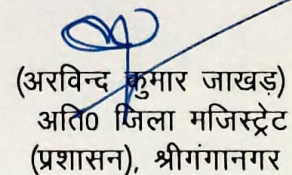 (अरविन्द कुमार जाखड़)
अति0 जिला मजिस्ट्रेट
(प्रशासन), श्रीगंगानगर